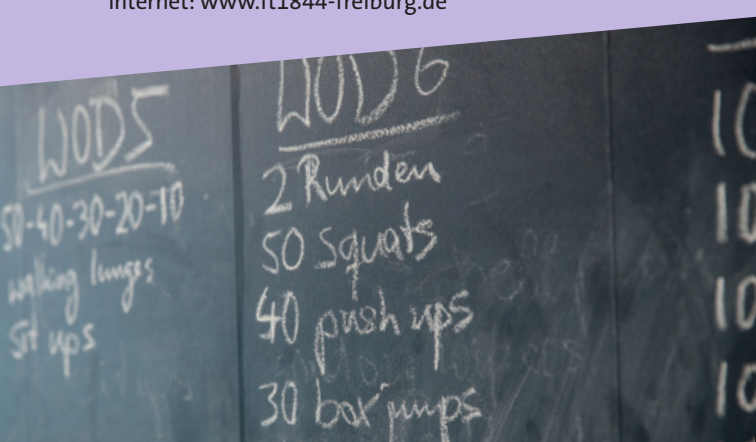 Internet: www.ft1844-freiburg.de
WOD 5
50-40-30-20-10
walking lunges
sit ups
WOD 6
2 Runden
50 Squats
40 push ups
30 box jumps
10
10
10
10